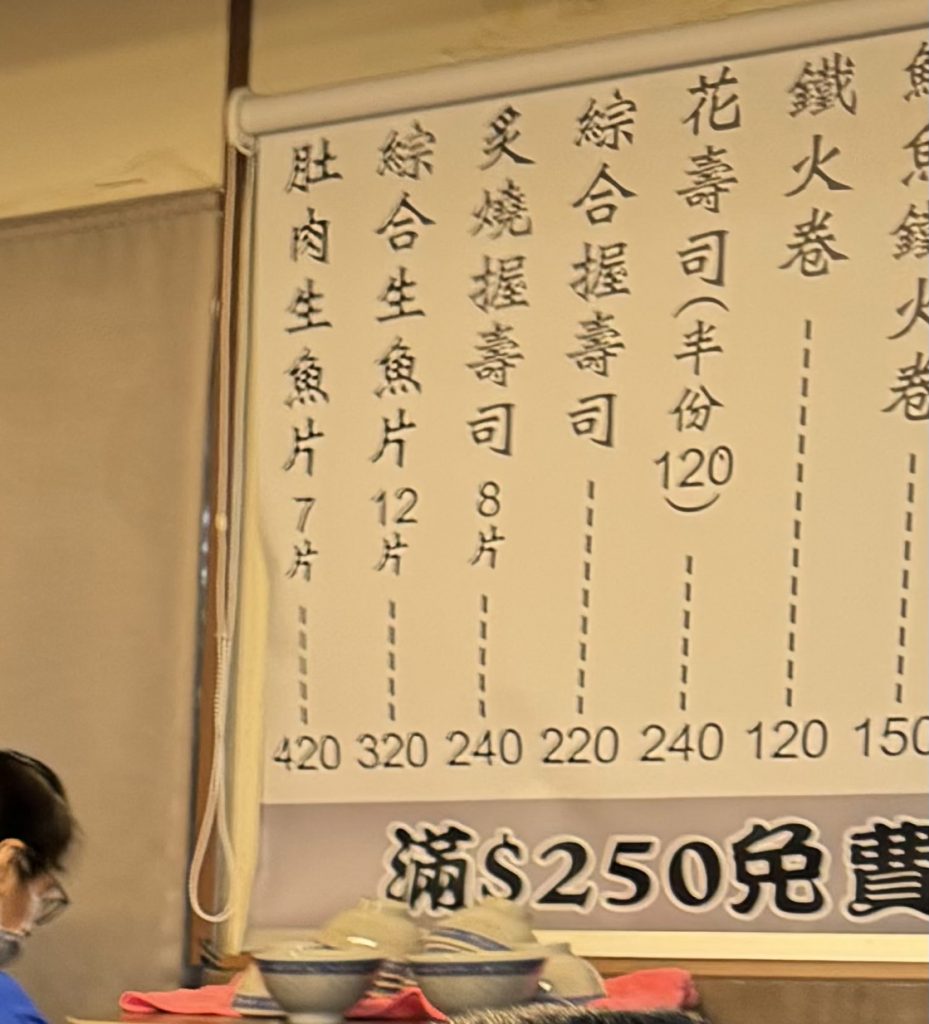 魚鐵火卷 150
鐵火卷 120
花壽司(半份120) 240
綜合握壽司 220
炙燒握壽司8片 240
綜合生魚片12片 320
肚肉生魚片7片 420
滿$250免費